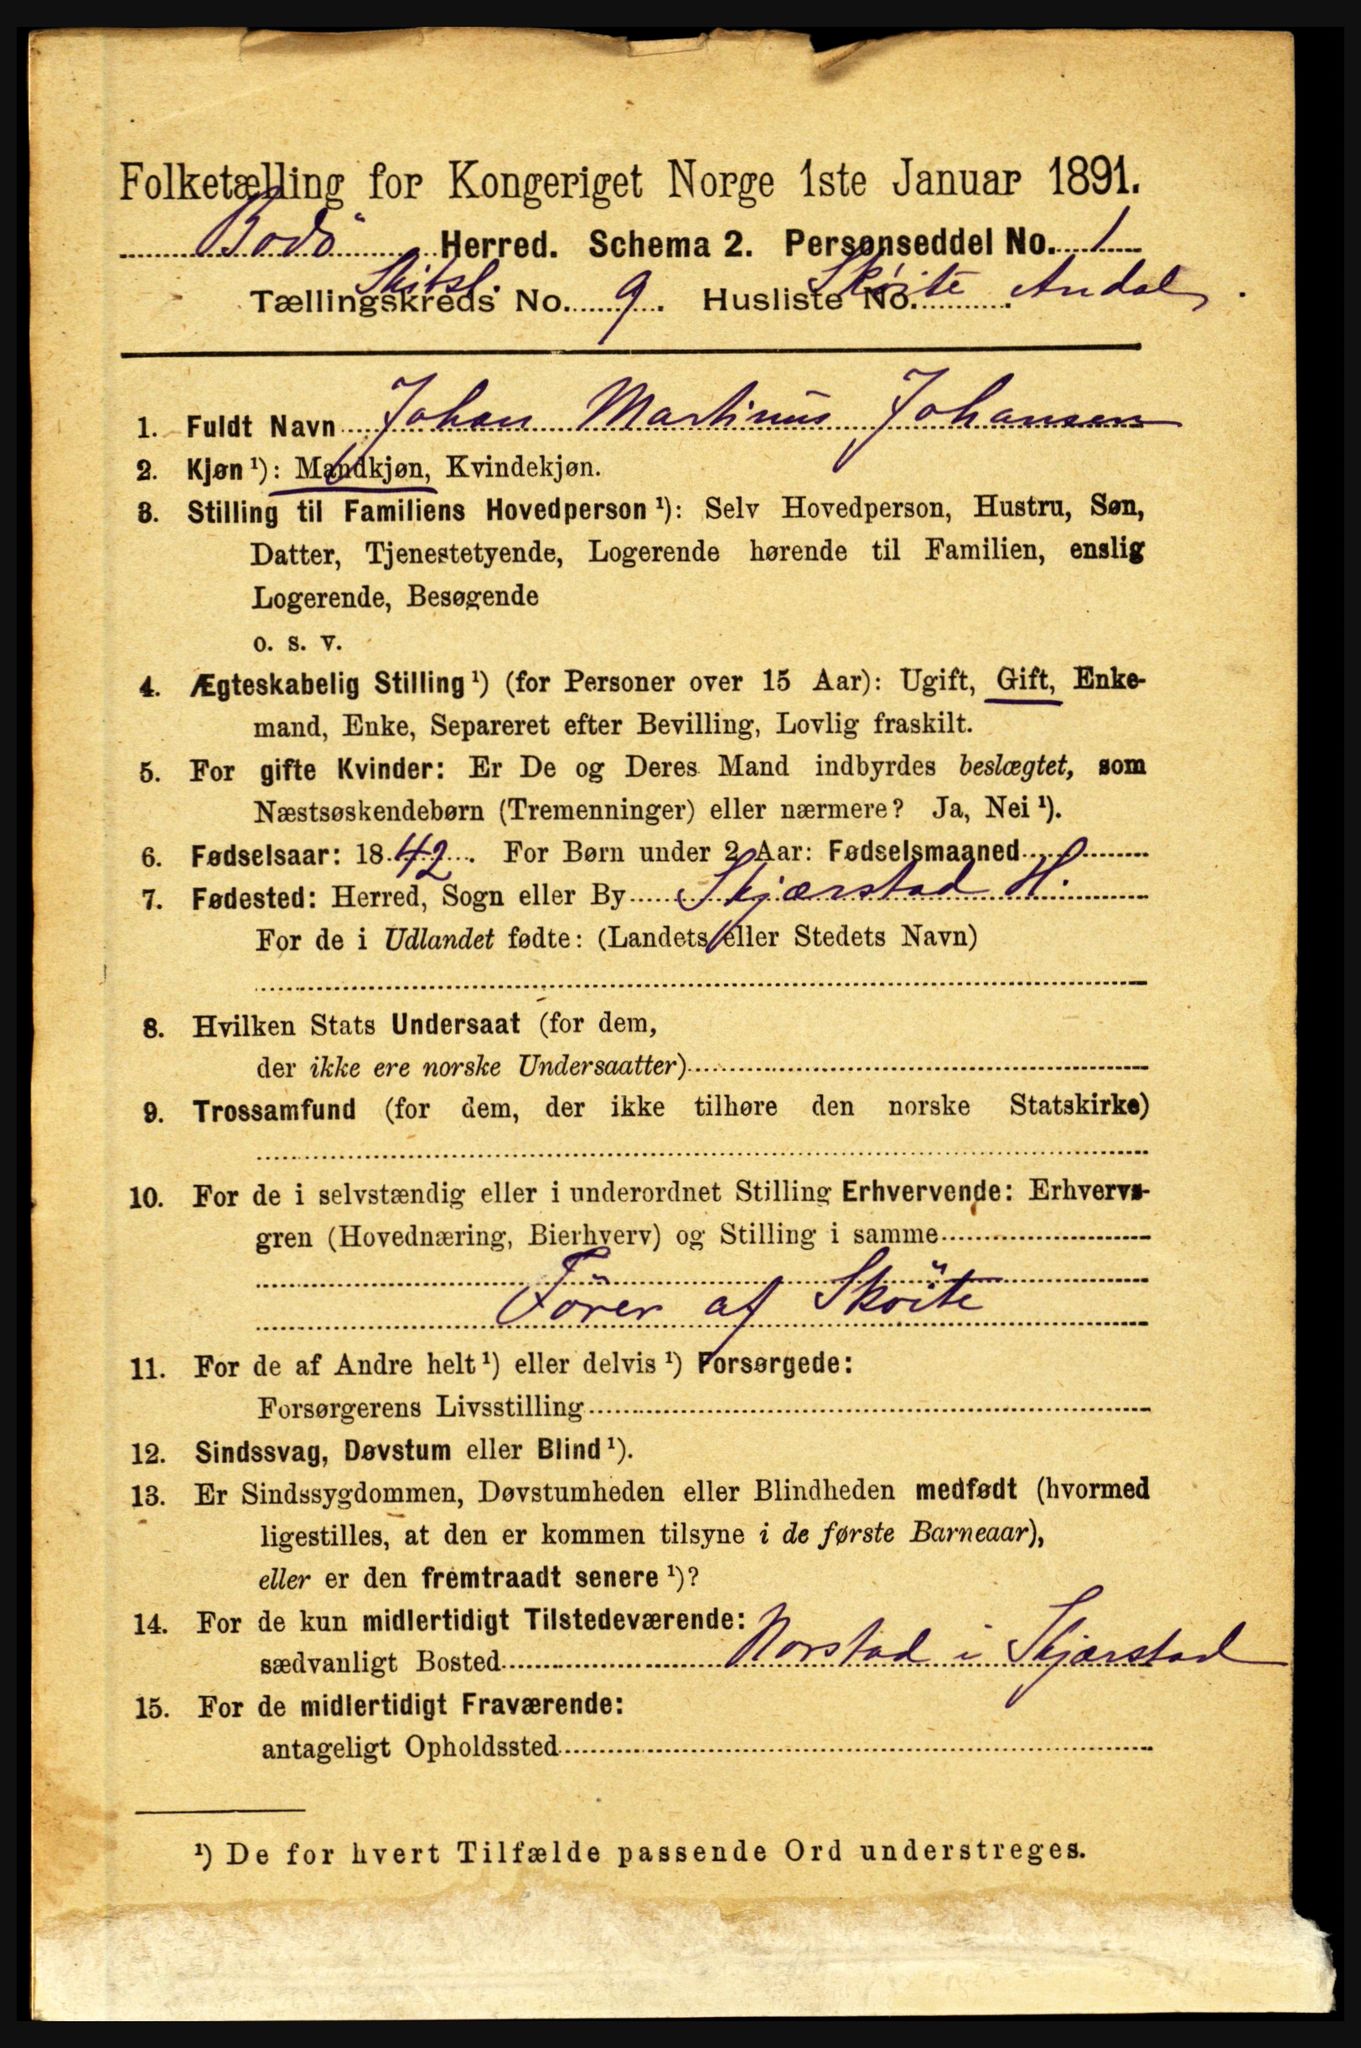 Folketælling for Kongeriget Norge 1ste Januar 1891.
Bodö Herred. Schema 2. Personseddel No. 1
Skibsl. Skøite Andal
Tællingskreds No. 9. Husliste No.
1. Fuldt Navn Johan Martinus Johansen
2. Kjøn¹): Mandkjøn, Kvindekjøn.
3. Stilling til Familiens Hovedperson¹): Selv Hovedperson, Hustru, Søn,
Datter, Tjenestetyende, Logerende hørende til Familien, enslig
Logerende, Besøgende
o. s. v.
4. Ægteskabelig Stilling¹) (for Personer over 15 Aar): Ugift, Gift, Enke-
mand, Enke, Separeret efter Bevilling, Lovlig fraskilt.
5. For gifte Kvinder: Er De og Deres Mand indbyrdes beslægtet, som
Næstsøskendebørn (Tremenninger) eller nærmere? Ja, Nei¹).
6. Fødselsaar: 1842. For Børn under 2 Aar: Fødselsmaaned
7. Fødested: Herred, Sogn eller By Skjærstad H.
For de i Udlandet fødte: (Landets eller Stedets Navn)
8. Hvilken Stats Undersaat (for dem,
der ikke ere norske Undersaatter)
9. Trossamfund (for dem, der ikke tilhøre den norske Statskirke)
10. For de i selvstændig eller i underordnet Stilling Erhvervende: Erhvervs-
gren (Hovednæring, Bierhverv) og Stilling i samme
Förer af Sköite
11. For de af Andre helt¹) eller delvis¹) Forsørgede:
Forsørgerens Livsstilling
12. Sindssvag, Døvstum eller Blind¹).
13. Er Sindssygdommen, Døvstumheden eller Blindheden medfødt (hvormed
ligestilles, at den er kommen tilsyne i de første Barneaar),
eller er den fremtraadt senere¹)?
14. For de kun midlertidigt Tilstedeværende:
sædvanligt Bosted Norstad i Skjærstad
15. For de midlertidigt Fraværende:
antageligt Opholdssted
¹) De for hvert Tilfælde passende Ord understreges.